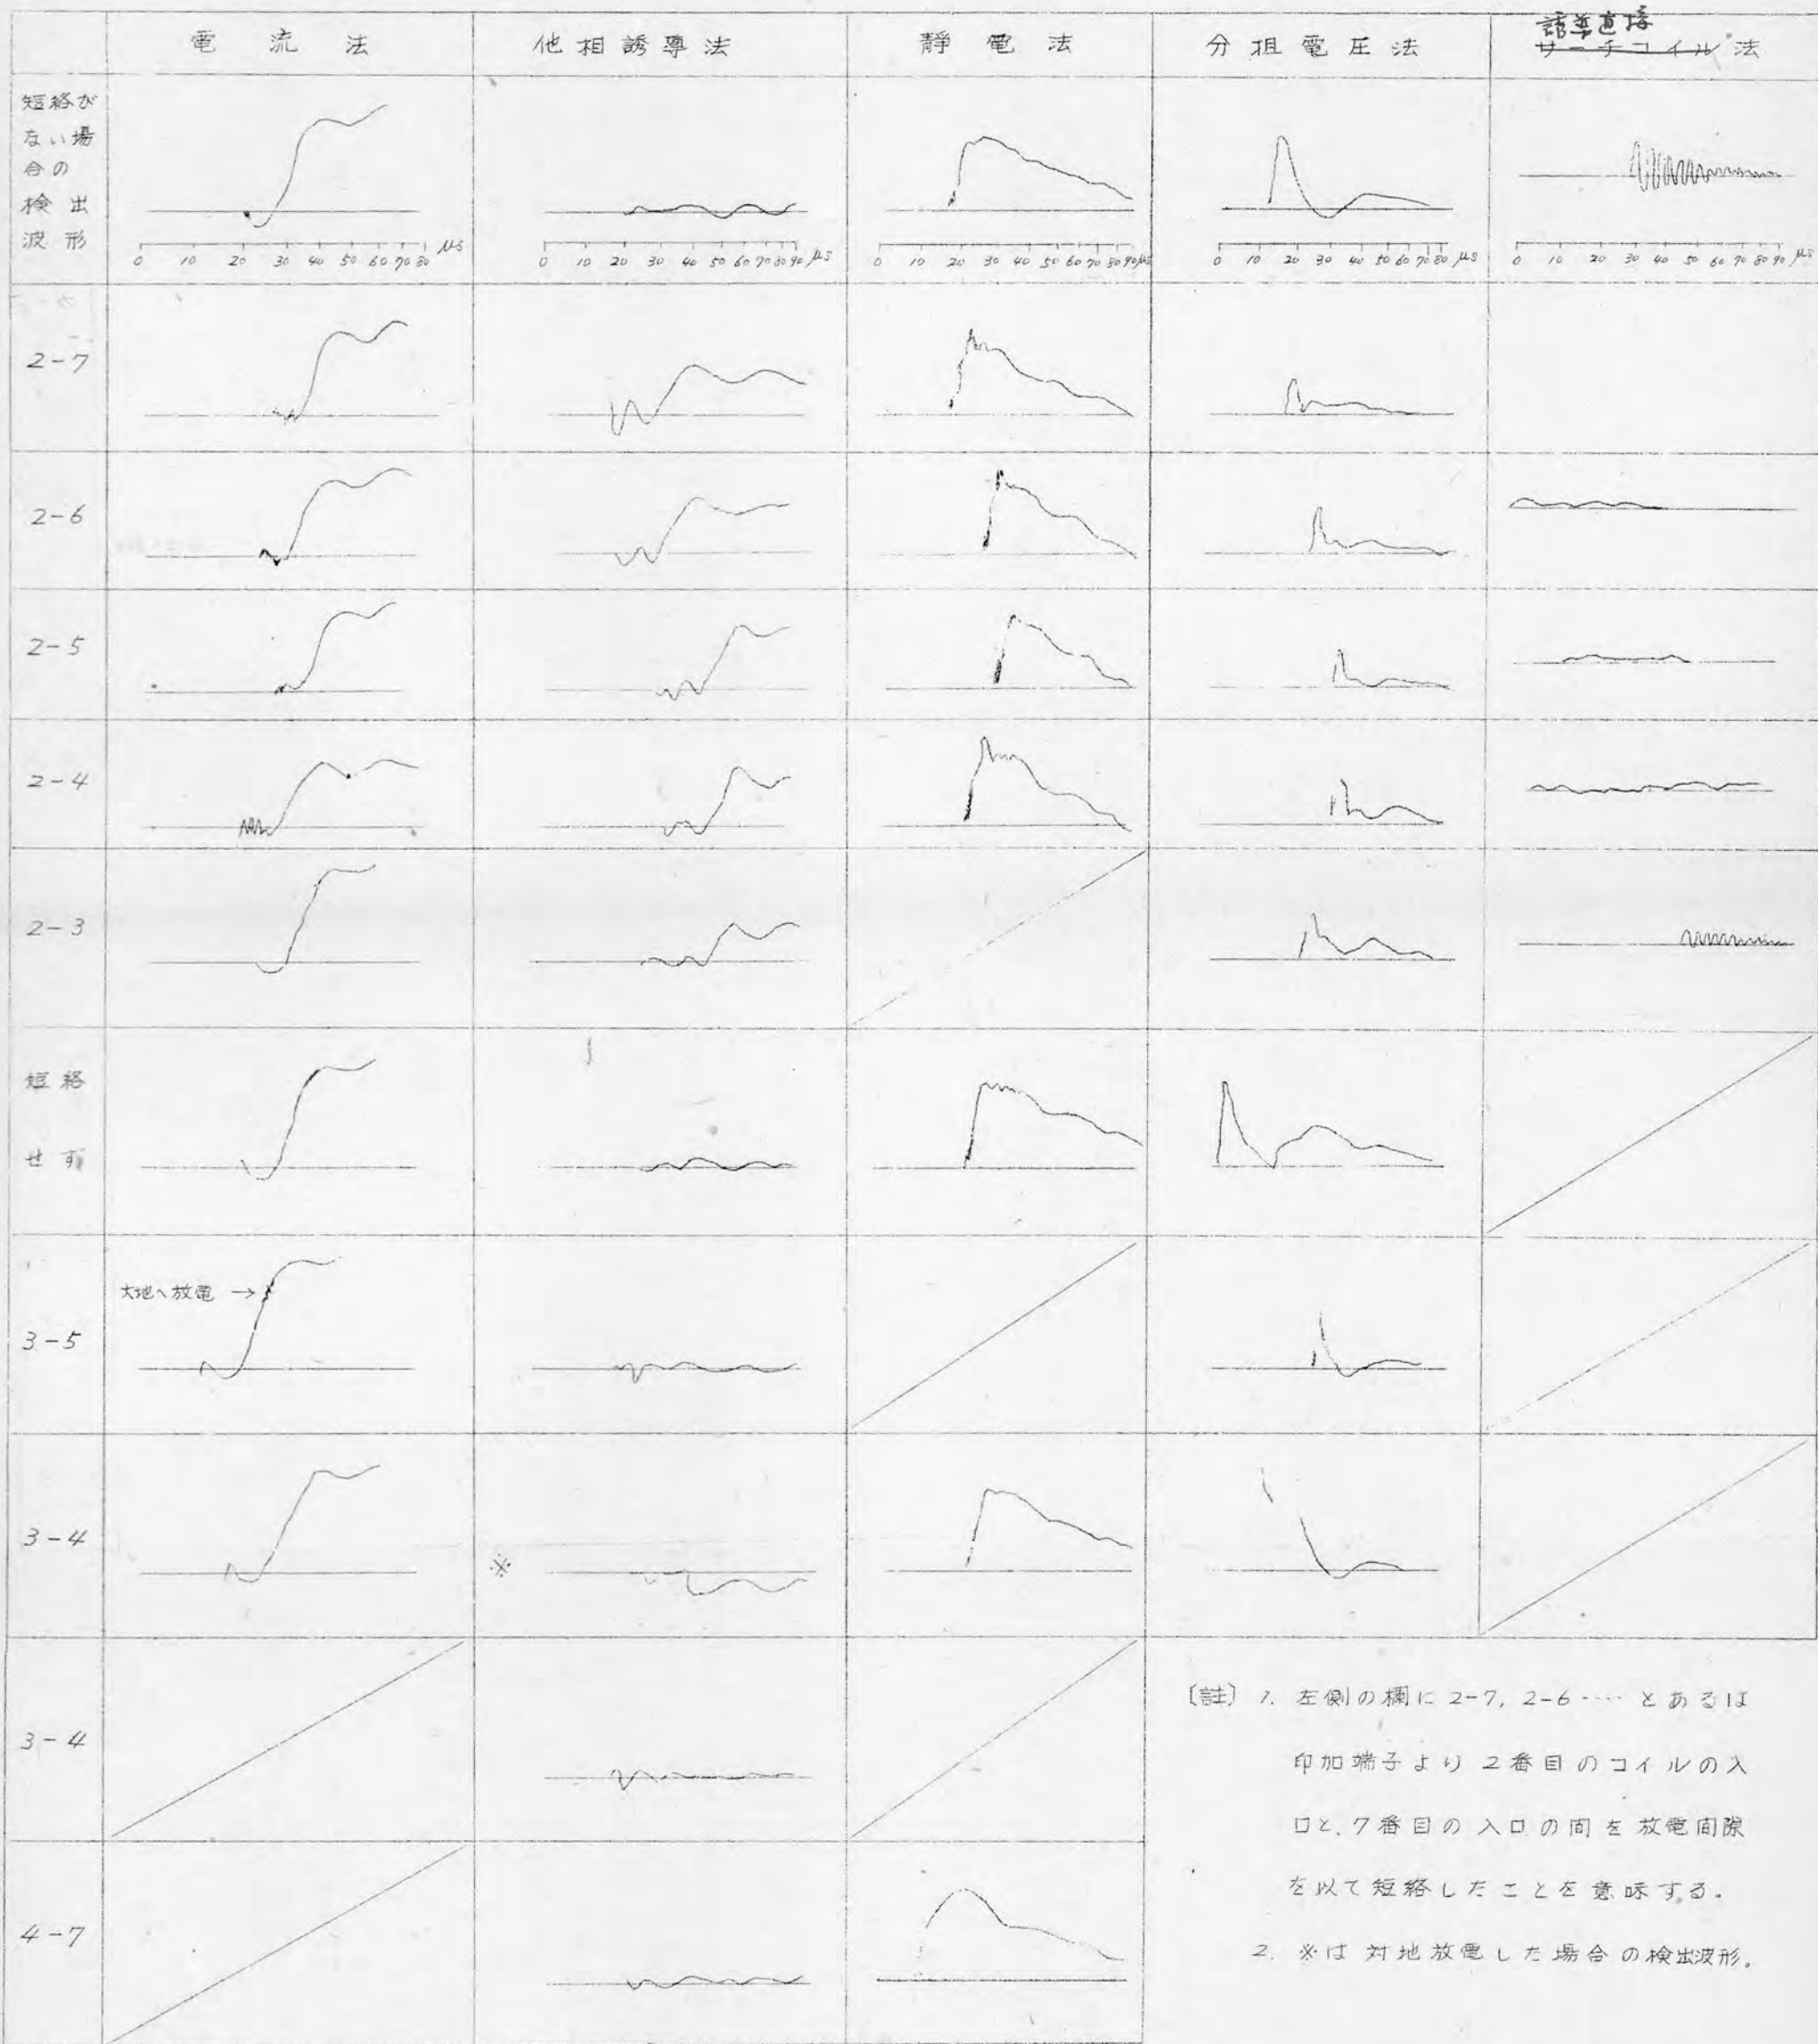 電流法
他相誘導法
静電法
分担電圧法
誘導直接
サーチコイル法
短絡が
ない場
合の
検出
波形
0 10 20 30 40 50 60 70 80 μs
0 10 20 30 40 50 60 70 80 90 μs
0 10 20 30 40 50 60 70 80 90 μs
0 10 20 30 40 50 60 70 80 μs
0 10 20 30 40 50 60 70 80 90 μs
2-7
2-6
2-5
2-4
2-3
短絡
せず
大地へ放電 →
3-5
3-4
※
3-4
4-7
〔註〕 1. 左側の欄に 2-7, 2-6 ‥‥ とあるは
印加端子より 2番目のコイルの入
口と、7番目の入口の間を放電間隙
を以て短絡したことを意味する。
2. ※は対地放電した場合の検出波形。